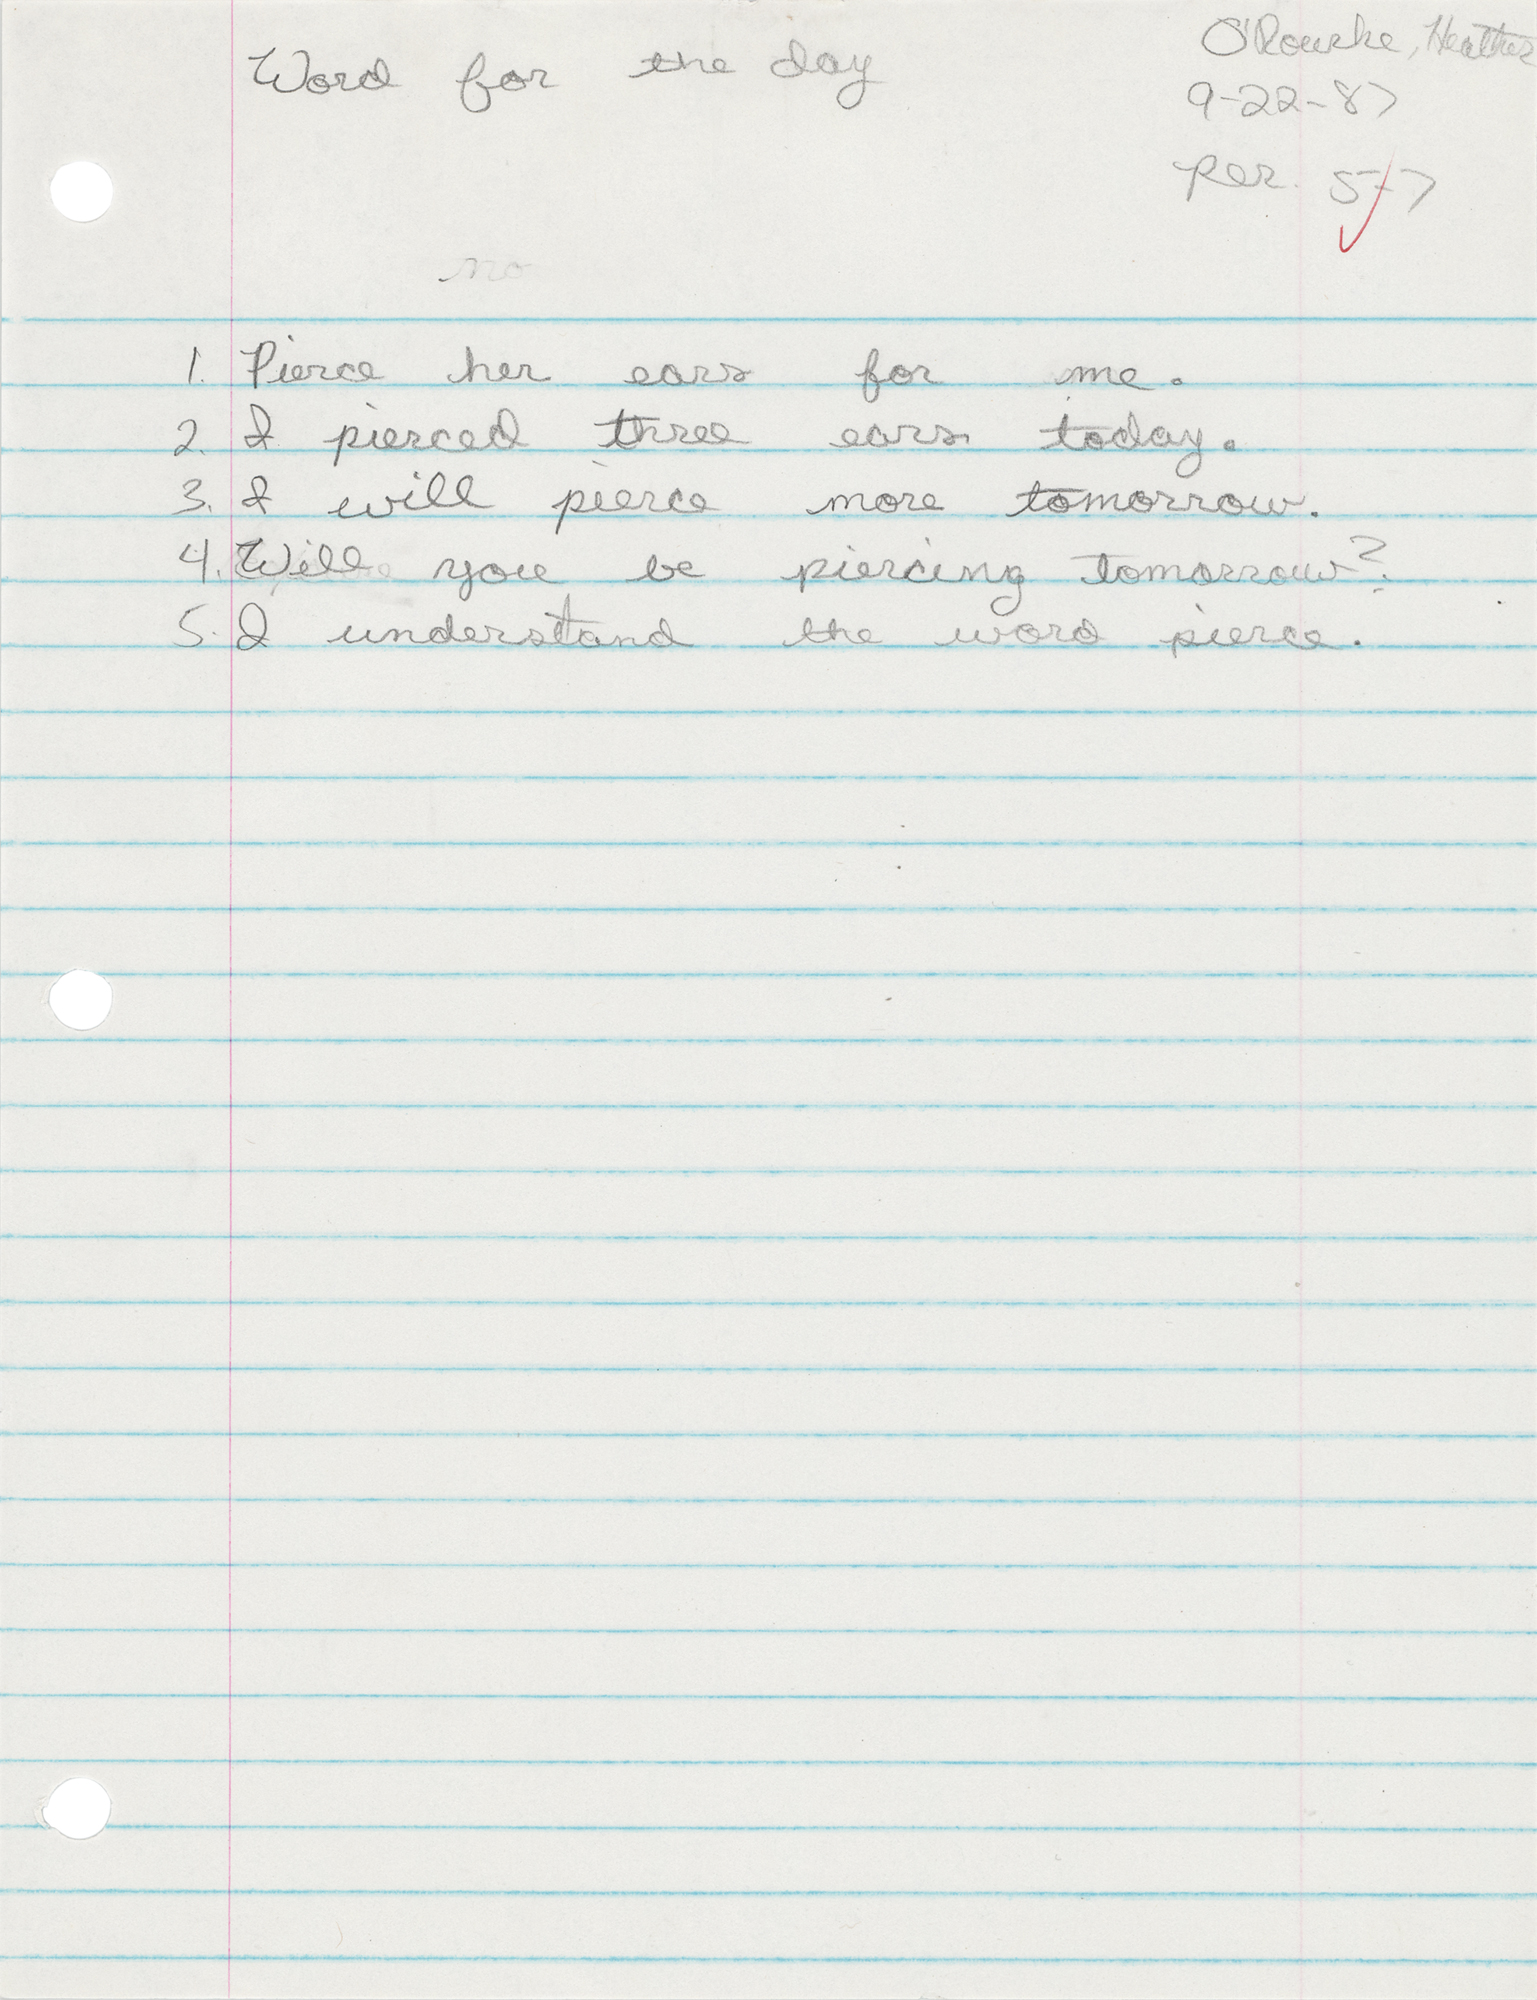 Word for the day
O'Rourke, Heather
9-22-87
Per. 5-7
no
1. Pierce her ears for me.
2. I pierced three ears today.
3. I will pierce more tomorrow.
4. Will you be piercing tomorrow?
5. I understand the word pierce.